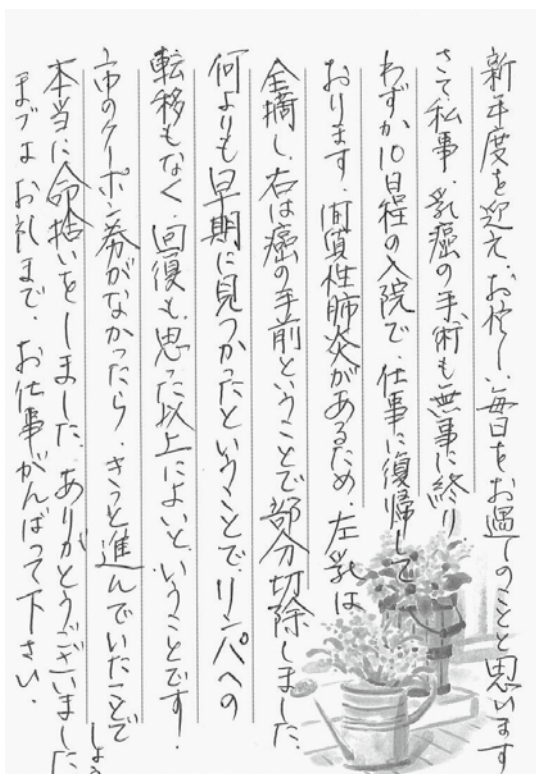 新年度を迎え、お忙しい毎日をお過しのことと思います
さて私事、乳癌の手術も無事に終り
わずか10日程の入院で、仕事に復帰して
おります。間質性肺炎があるため、左乳は
全摘し、右は癌の手前ということで部分切除しました。
何よりも早期に見つかったということで、リンパへの
転移もなく、回復も、思った以上によいということです。
市のクーポン券がなかったら、きっと進んでいたことでしょう
本当に命拾いをしました。ありがとうございました
まずはお礼まで。お仕事がんばって下さい。